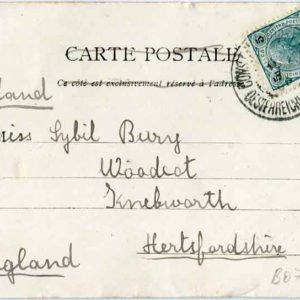 CARTE POSTALE
Ce côté est exclusivement réservé à l'adresse
land
iss Sybil Bury
Woodcot
Knebworth
Hertsfordshire
gland